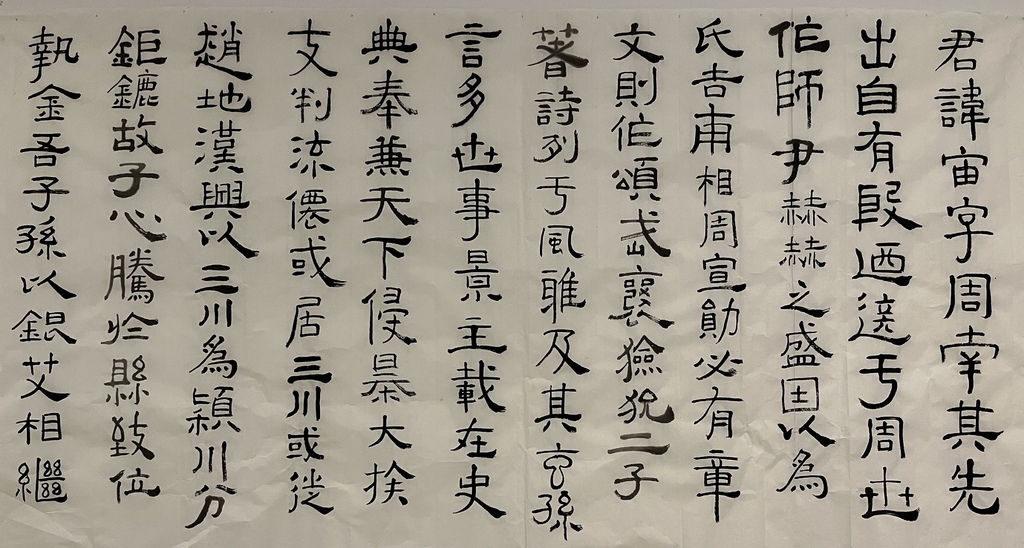 君諱宙字周南其先
出自有殷迺迄于周世
作師尹赫赫之盛因以為
氏吉甫相周宣勛必有章
文則作頌武襄獫狁二子
著詩列于風雅及其玄孫
言多世事景主載在史
典秦兼天下侵暴大族
支判流僊或居三川或徙
趙地漢興以三川為潁川分
鉅鏕故子心騰於縣致位
執金吾子孫以銀艾相繼